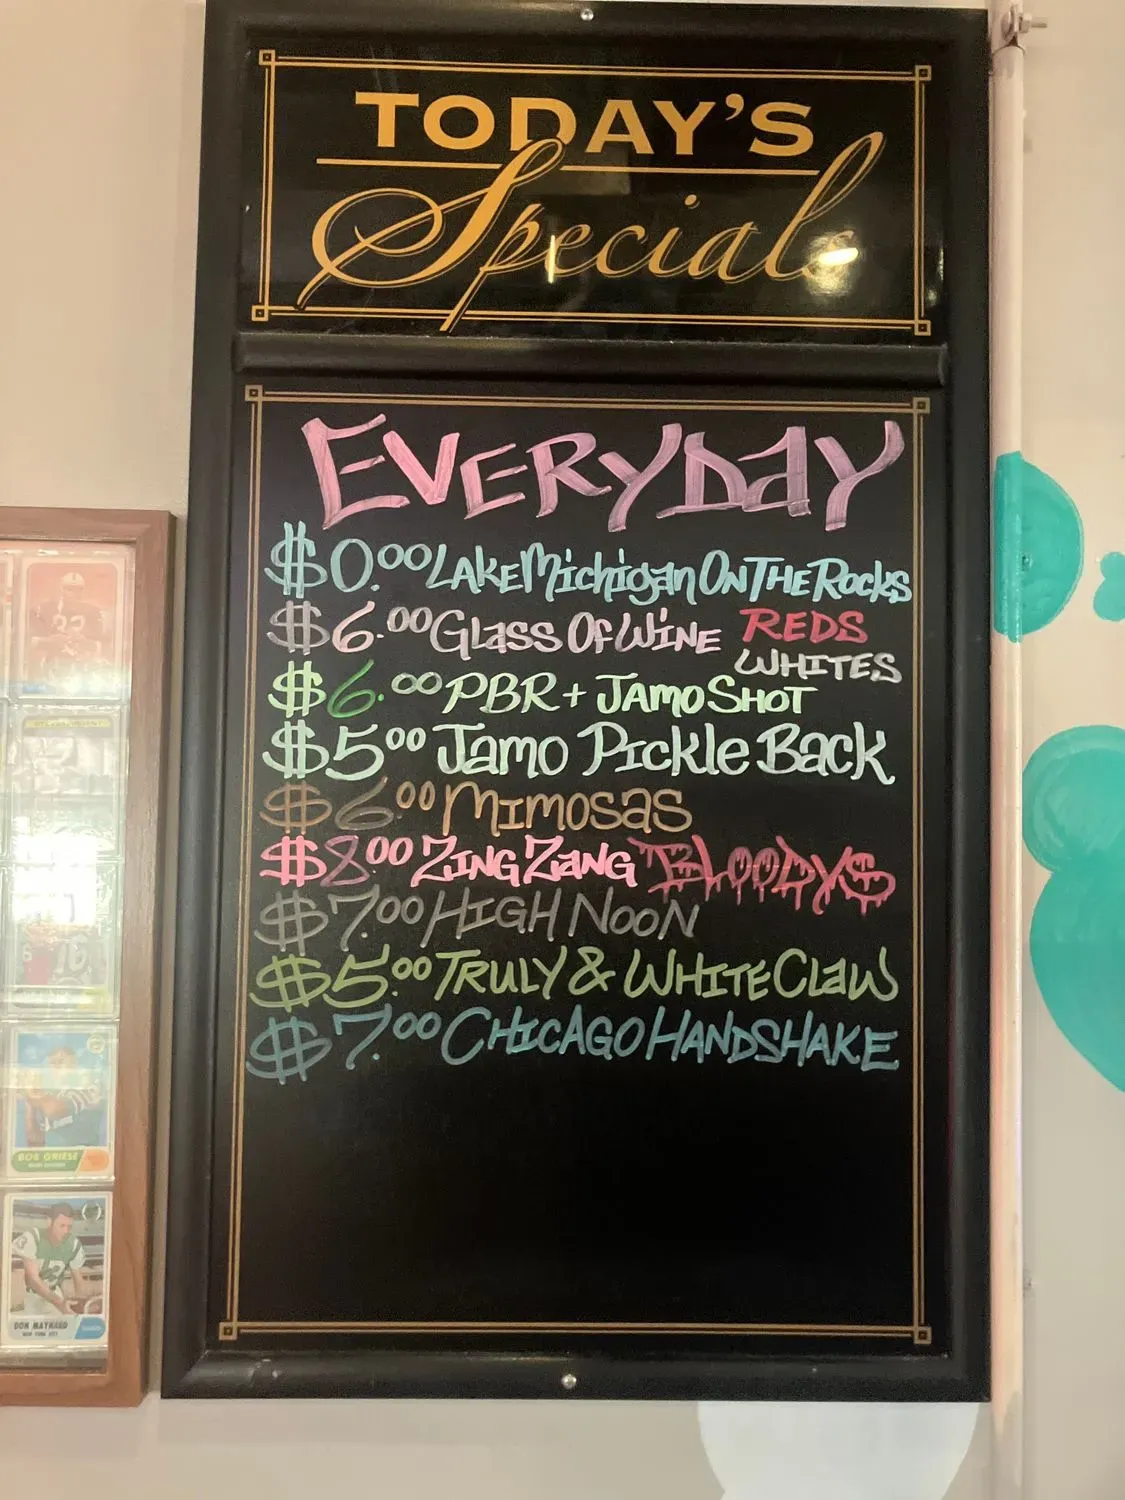 TODAY'S
Specials
EVERYDAY
$0.00 LAKE Michigan ON THE Rocks
$6.00 Glass Of WINE REDS
WHITES
$6.00 PBR + JAMO SHOT
$5.00 Jamo Pickle Back
$6.00 Mimosas
$8.00 ZING ZANG BLOODYS
$7.00 HIGH NOON
$5.00 TRULY & WHITE Claw
$7.00 CHICAGO HANDSHAKE
BOB GRIESE
DON MAYNARD
NEW YORK JETS